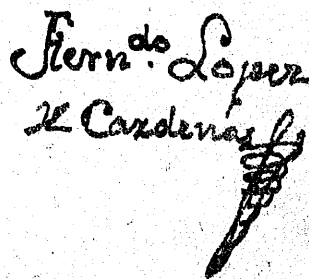 Fern.do Lopez
de Cardenas